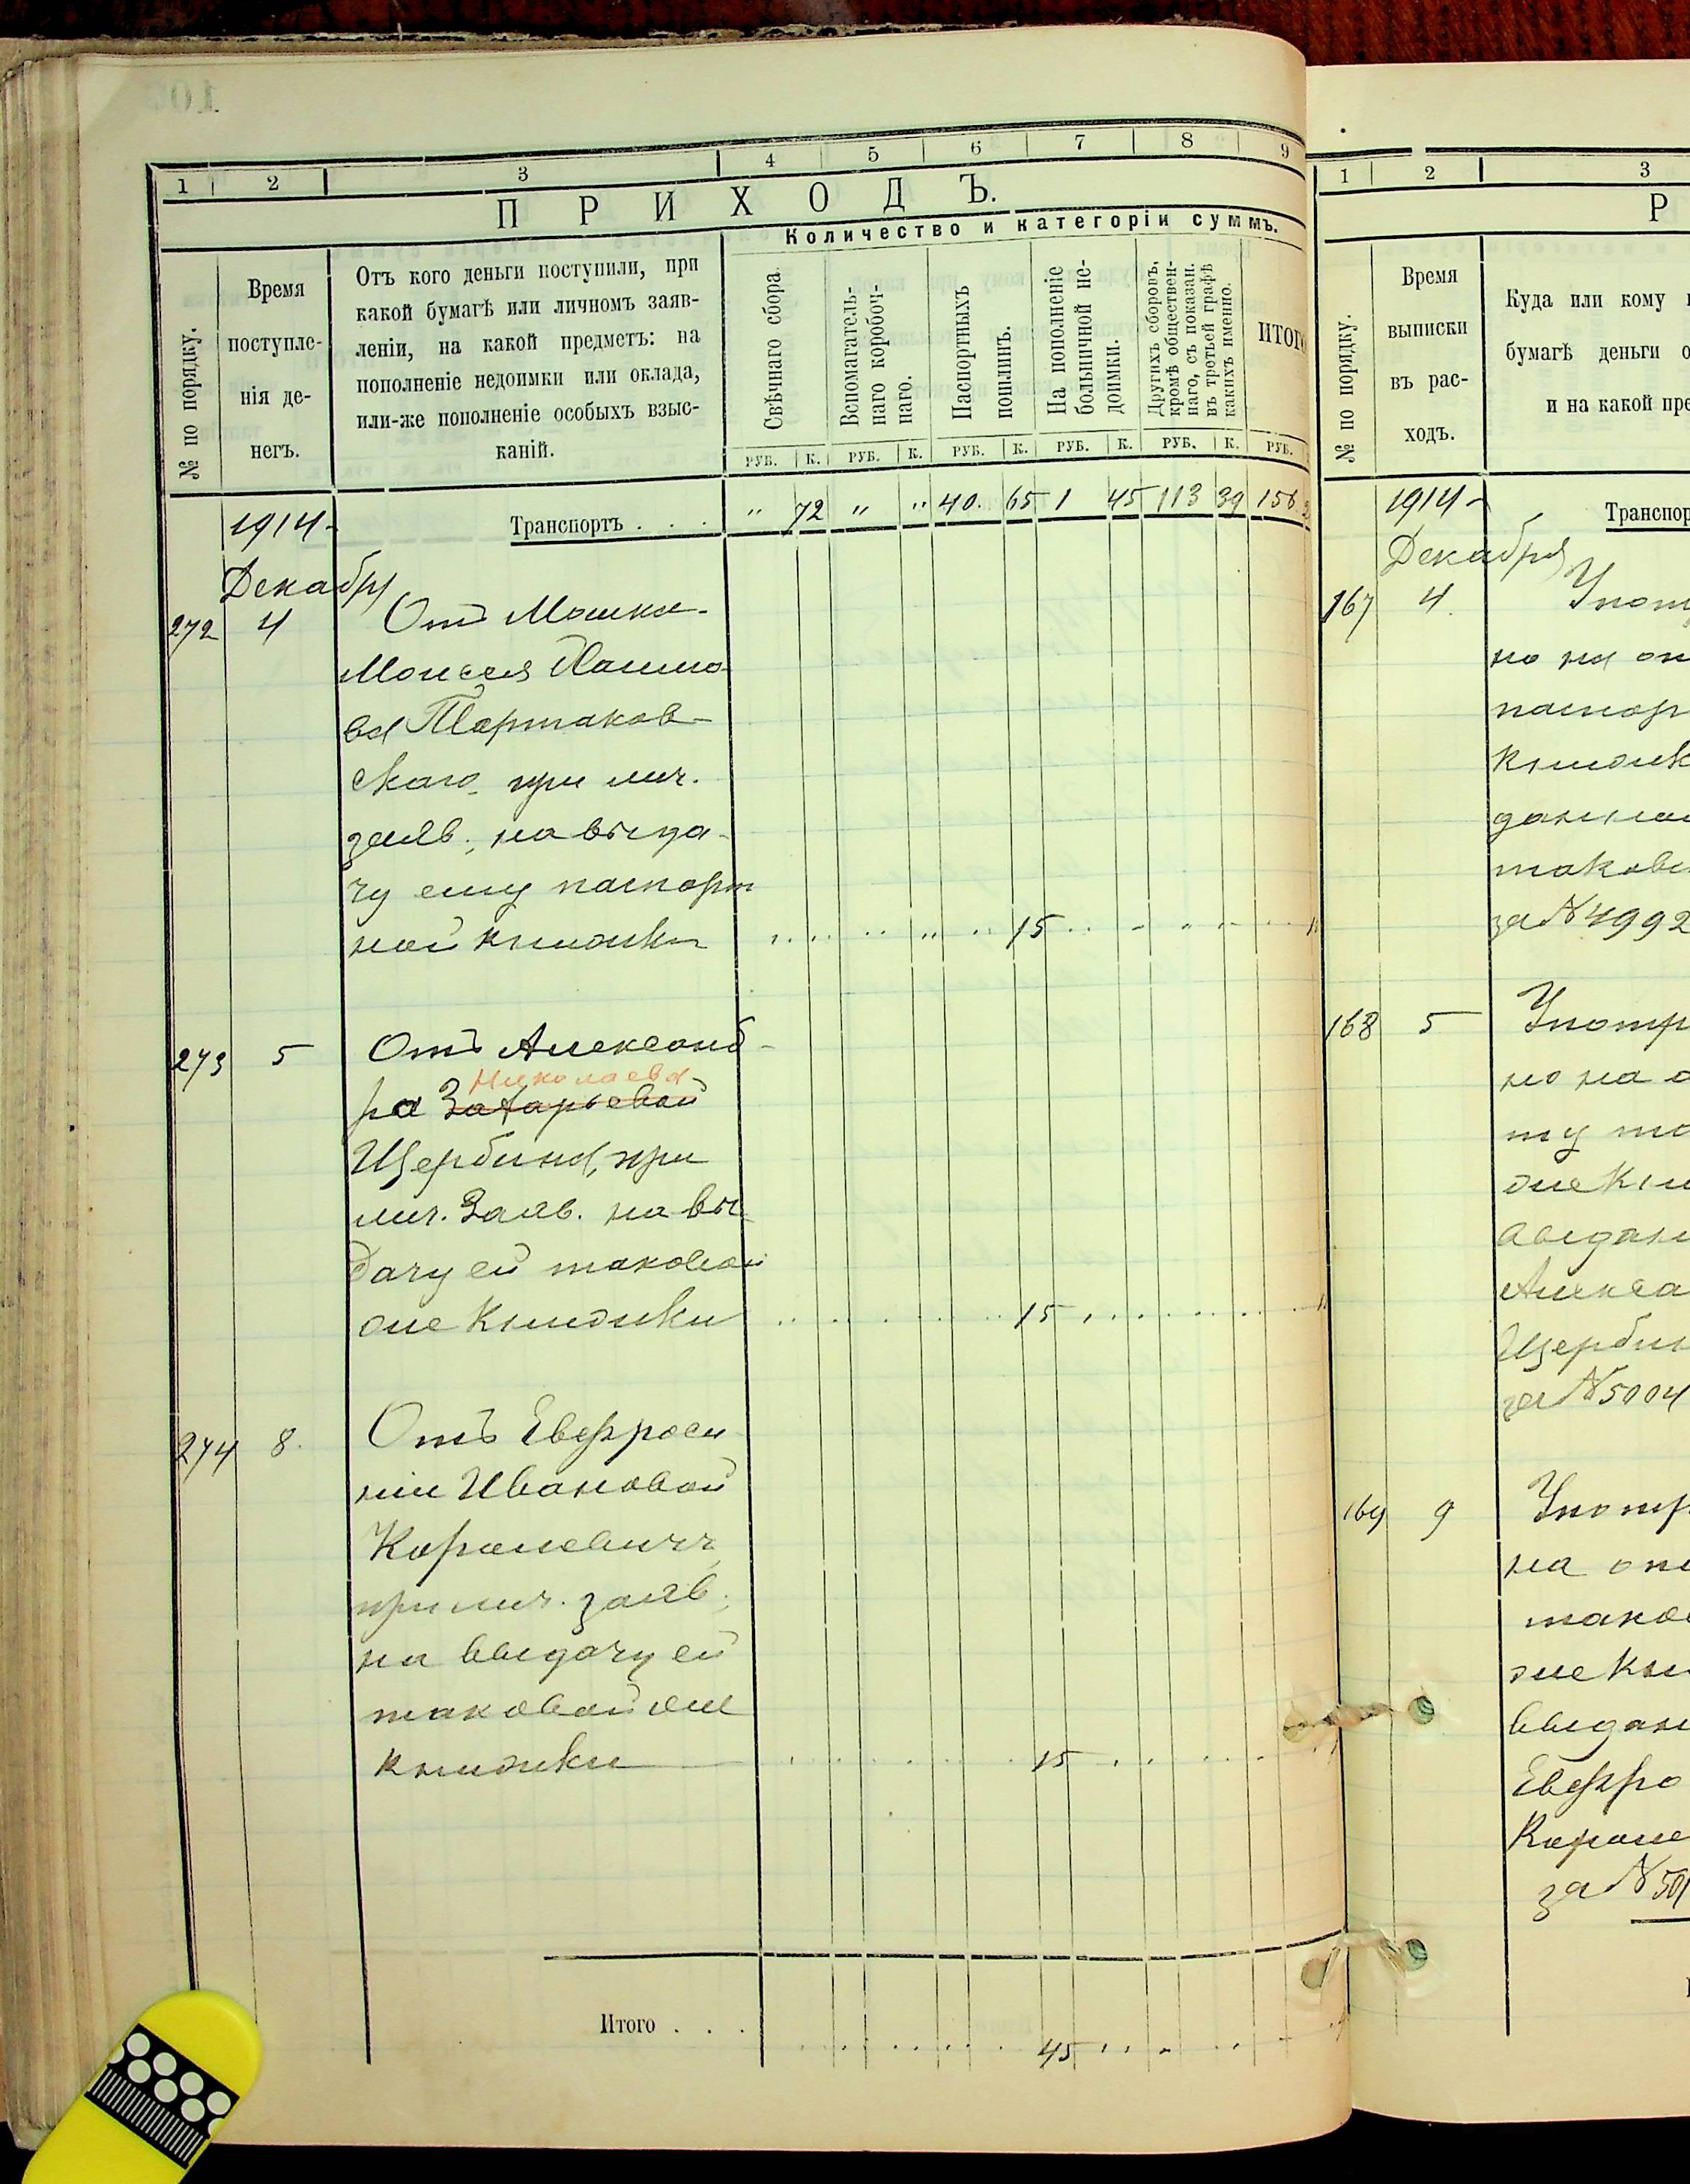 1 2 3 4 5 6 7 8 9
ПРИХОДЪ.
Количество и категоріи суммъ.
№ по порядку.
Время
поступле-
нія де-
негъ.
Отъ кого деньги поступили, при
какой бумагѣ или личномъ заяв-
леніи, на какой предметъ: на
пополненіе недоимки или оклада,
или-же пополненіе особыхъ взыс-
каній.
Свѣчнаго сбора.
Вспомагатель-
наго коробоч-
наго.
Паспортныхъ
пошлинъ.
На пополненіе
больничной не-
доимки.
Другихъ сборовъ,
кромѣ обществен-
наго, съ показан.
въ третьей графѣ
какихъ именно.
ИТОГО
РУБ. К. РУБ. К. РУБ. К. РУБ. К. РУБ. К. РУБ.
1914- Транспортъ . . . " 72 " " 40. 65 1 45 113 39 156
Декабря
272 4 Отъ Мошки-
Моисея Хаимо-
ва Тартаков-
скаго при лич.
заяв., на выда-
чу ему паспорт
ной книжки 15
273 5 Отъ Александ-
Николаева
ра Захарьевой
Щербина, при
лич. Заяв. на вы-
дачу ей таковой
же книжки 15
274 8. Отъ Евфроси
ніи Ивановой
Караневичъ
при лич. заяв.
на выдачу ей
таковой же
книжки 15
Итого . . . 45
1 2 3
Р
№ по порядку.
Время
выписки
въ рас-
ходъ.
Куда или кому
бумагѣ деньги о
и на какой пре
1914- Транспор
Декабря
167 4. Упот
но на оп
паспор
книжк
данной
таковс
за №4992
168 5 Употр
но на о
ту та
же кни
выдан
Алекса
Щербин
за №5004
169 9 Употр
на опл
тако
же кни
выдан
Евфро
Каране
за №501